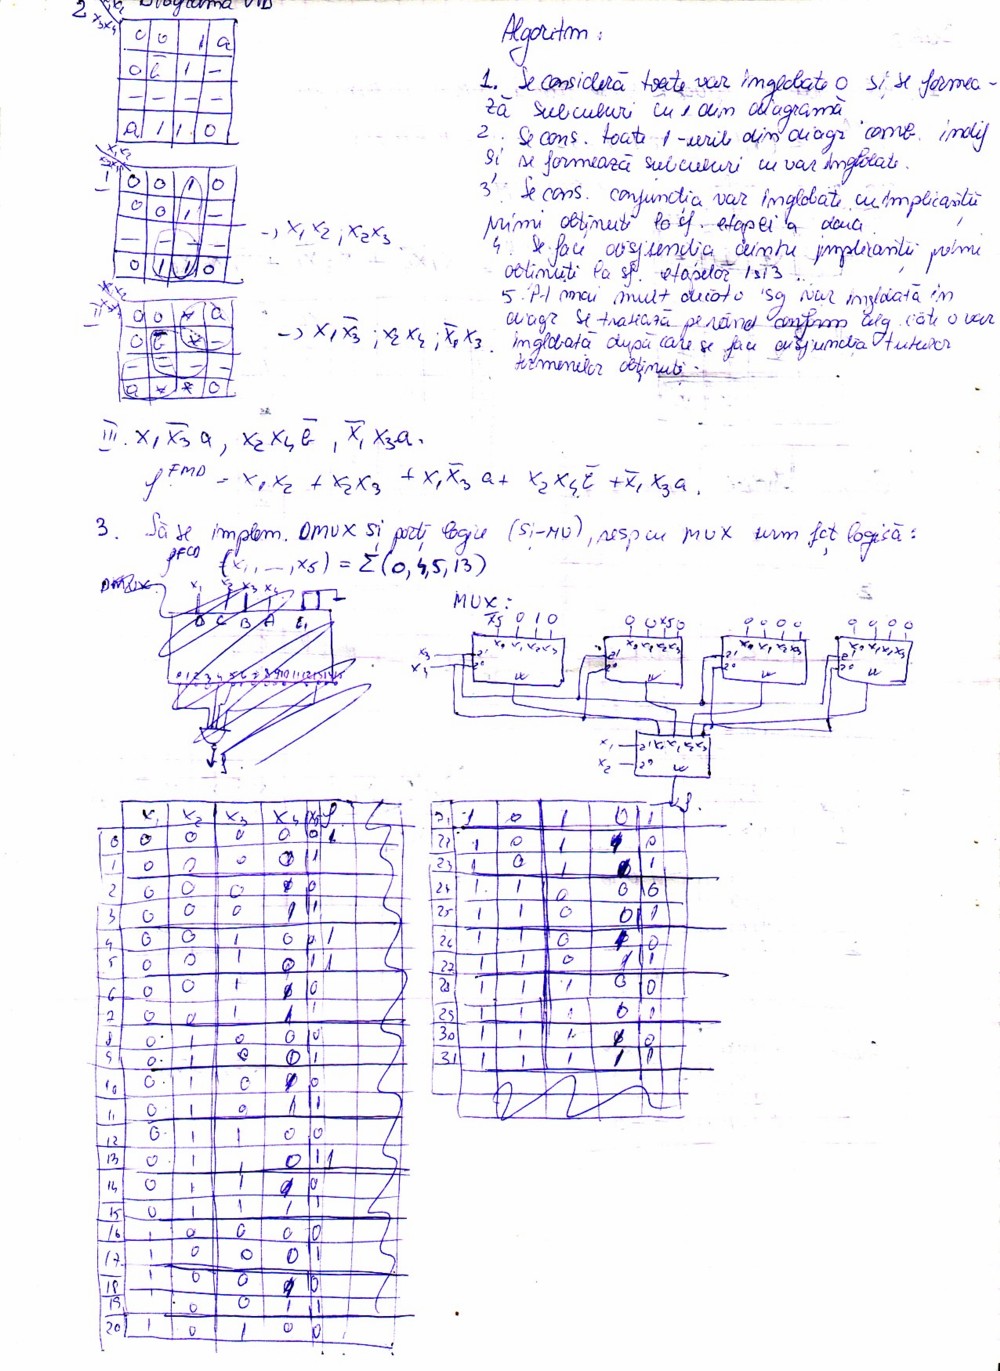 2 Diagrama VID
x₁x₂
x₃x₄
0 0 1 a
0 b̄ 1 –
– – – –
a 1 1 0
Algoritm:
1. Se consideră toate var inglobate 0 si se formea-
ză subcuburi cu 1 din diagramă
2. Se cons. toate 1-urile din diagr comb. indif
și se formează subcuburi cu var inglobate.
3. Se cons. conjuncția var inglobate cu implicanții
primi obținuți la sf. etapei a doua
4. Se face disjuncția dintre implicanții primi
obținuți la sf. etapelor 1 si 3.
5. Pt mai mult decât o sg var inglobată in
diagr se tratează pe rând conform alg. câte o var
inglobată după care se face disjuncția tuturor
termenilor obținuți.
I
0 0 1 0
0 0 1 –
– – – –
0 1 1 0
→ x₁x₂ ; x₂x₃
II
0 0 * a
0 b̄ * –
– – – –
a * * 0
→ x₁x̄₃ ; x₂x₄ ; x̄₁x₃.
III. x₁x̄₃a, x₂x₄b̄, x̄₁x₃a.
f FMD = x₁x₂ + x₂x₃ + x₁x̄₃a + x₂x₄b̄ + x̄₁x₃a.
3. Să se implem. DMUX si porți logice (SI-NU), resp cu MUX urm fct logică:
f FCD (x₁, ..., x₅) = Σ(0,4,5,13)
DMUX
x₁ x₂ x₃ x₄
D C B A E₁
0 1 2 3 4 5 6 7 8 9 10 11 12 13 14 15
f
MUX:
x̄₅ 0 1 0
0 0 x₅ 0
0 0 0 0
0 0 0 0
x₀ x₁ x₂ x₃
x₀ x₁ x₂ x₃
x₀ x₁ x₂ x₃
x₀ x₁ x₂ x₃
x₃ 2¹
x₄ 2⁰
2¹ 2⁰
2¹ 2⁰
2¹ 2⁰
w w w w
x₁ 2¹ x₀ x₁ x₂ x₃
x₂ 2⁰ w
f.
x₁ x₂ x₃ x₄ x₅ f
0 0 0 0 0 0 1
1 0 0 0 0 1
2 0 0 0 1 0
3 0 0 0 1 1
4 0 0 1 0 0 1
5 0 0 1 0 1 1
6 0 0 1 1 0
7 0 0 1 1 1
8 0 1 0 0 0
9 0 1 0 0 1
10 0 1 0 1 0
11 0 1 0 1 1
12 0 1 1 0 0
13 0 1 1 0 1 1
14 0 1 1 1 0
15 0 1 1 1 1
16 1 0 0 0 0
17 1 0 0 0 1
18 1 0 0 1 0
19 1 0 0 1 1
20 1 0 1 0 0
21 1 0 1 0 1
22 1 0 1 1 0
23 1 0 1 1 1
24 1 1 0 0 0
25 1 1 0 0 1
26 1 1 0 1 0
27 1 1 0 1 1
28 1 1 1 0 0
29 1 1 1 0 1
30 1 1 1 1 0
31 1 1 1 1 1